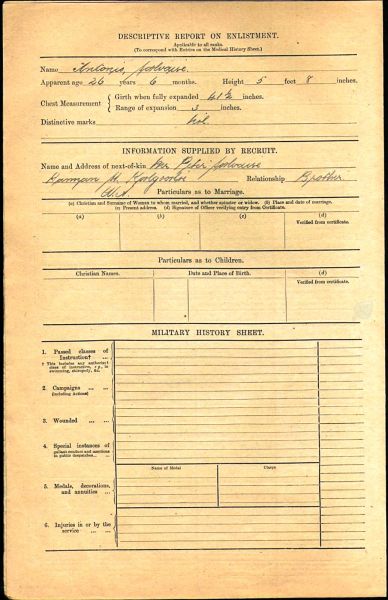 DESCRIPTIVE REPORT ON ENLISTMENT.
Applicable to all ranks.
(To correspond with Entries on the Medical History Sheet.)
Name Antonio
Apparent age 26 years 6 months. Height 5 feet 8 inches.
Chest Measurement { Girth when fully expanded 41½ inches.
Range of expansion 3 inches.
Distinctive marks Nil.
INFORMATION SUPPLIED BY RECRUIT.
Name and Address of next-of-kin Mr Peter
St. Kalgoorlie Relationship Brother
W.A.
Particulars as to Marriage.
(a) Christian and Surname of Woman to whom married, and whether spinster or widow. (b) Place and date of marriage.
(c) Present address. (d) Signature of Officer verifying entry from Certificate.
(a) (b) (c) (d)
Verified from certificate.
Particulars as to Children.
Christian Names. Date and Place of Birth. (d)
Verified from certificate.
MILITARY HISTORY SHEET.
1. Passed classes of
Instruction† ...
† This includes any authorised
class of instruction, e.g., in
swimming, chiropody, &c.
2. Campaigns ... ...
(including Actions)
3. Wounded ... ...
4. Special instances of
gallant conduct and mentions
in public despatches...
Name of Medal Clasps
5. Medals, decorations,
and annuities ...
6. Injuries in or by the
service ... ...